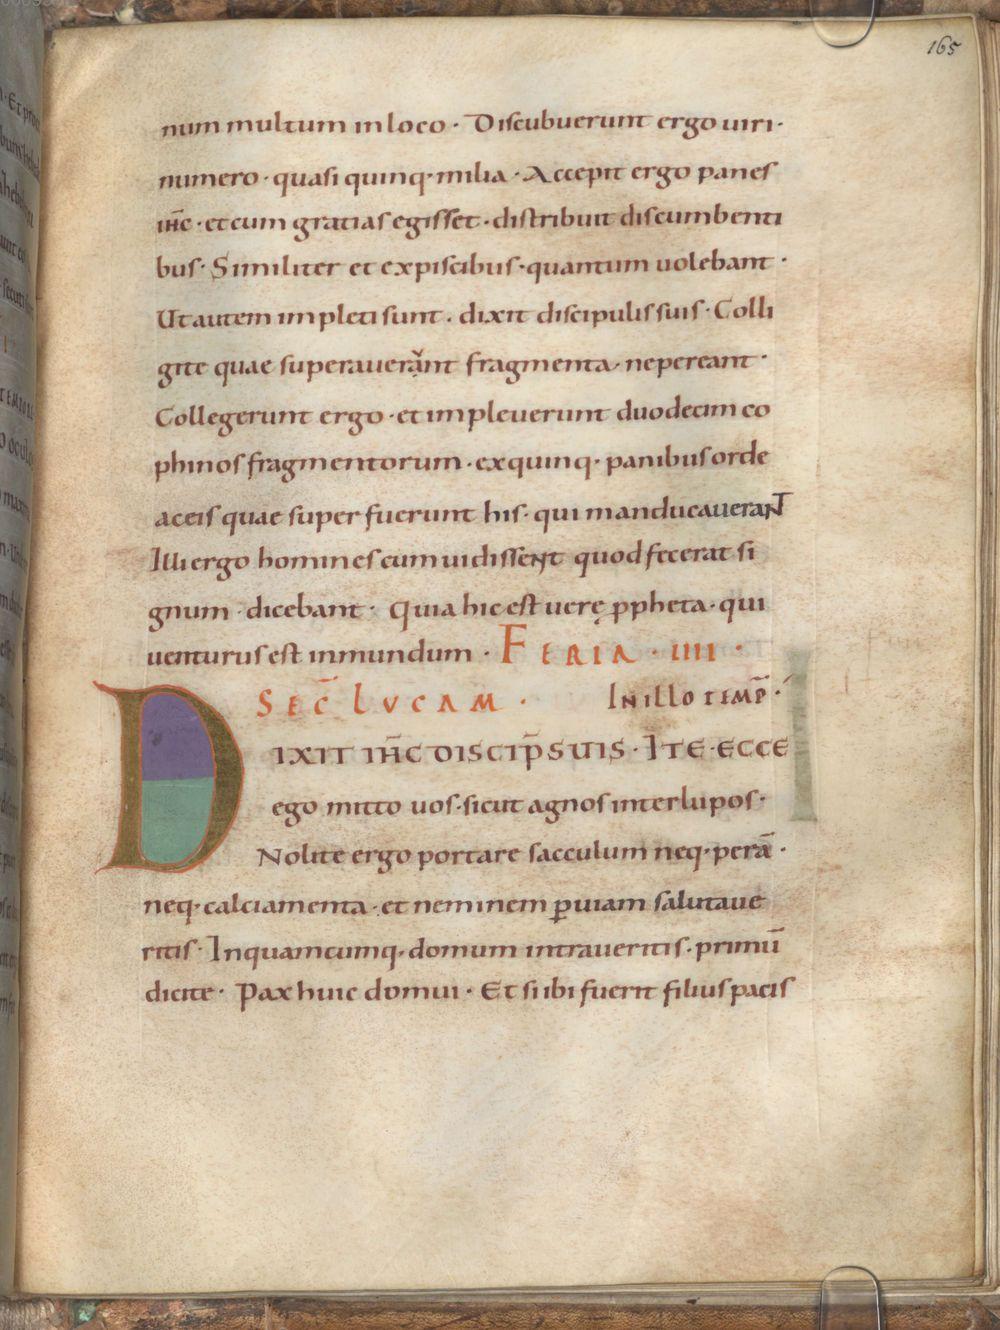 165
num multum in loco · Discubuerunt ergo uiri ·
numero · quasi quinq· milia · Accepit ergo panes
ih̄c · et cum gratias egisset · distribuit discumbenti
bus · Similiter et ex piscibus · quantum uolebant ·
Ut autem impleti sunt · dixit discipulis suis · Colli
gite quae superauerant fragmenta · ne pereant ·
Collegerunt ergo · et impleuerunt duodecim co
phinos fragmentorum · ex quinq· panibus orde
aceis quae superfuerunt his · qui manducauerant
Illi ergo homines cum uidissent quod fecerat si
gnum · dicebant · Quia hic est uere ꝓpheta · qui
uenturus est in mundum · FERIA · IIII ·
SEC̄ LUCAM · In illo temp̄ ·
DIXIT IH̄C DISCIP̄ SUIS · ITE · ECCE
ego mitto uos · sicut agnos inter lupos ·
Nolite ergo portare sacculum neq· perā ·
neq· calciamenta · et neminem ꝑ uiam salutaue
ritis · In quamcumq· domum intraueritis · primū
dicite · Pax huic domui · Et si ibi fuerit filius pacis